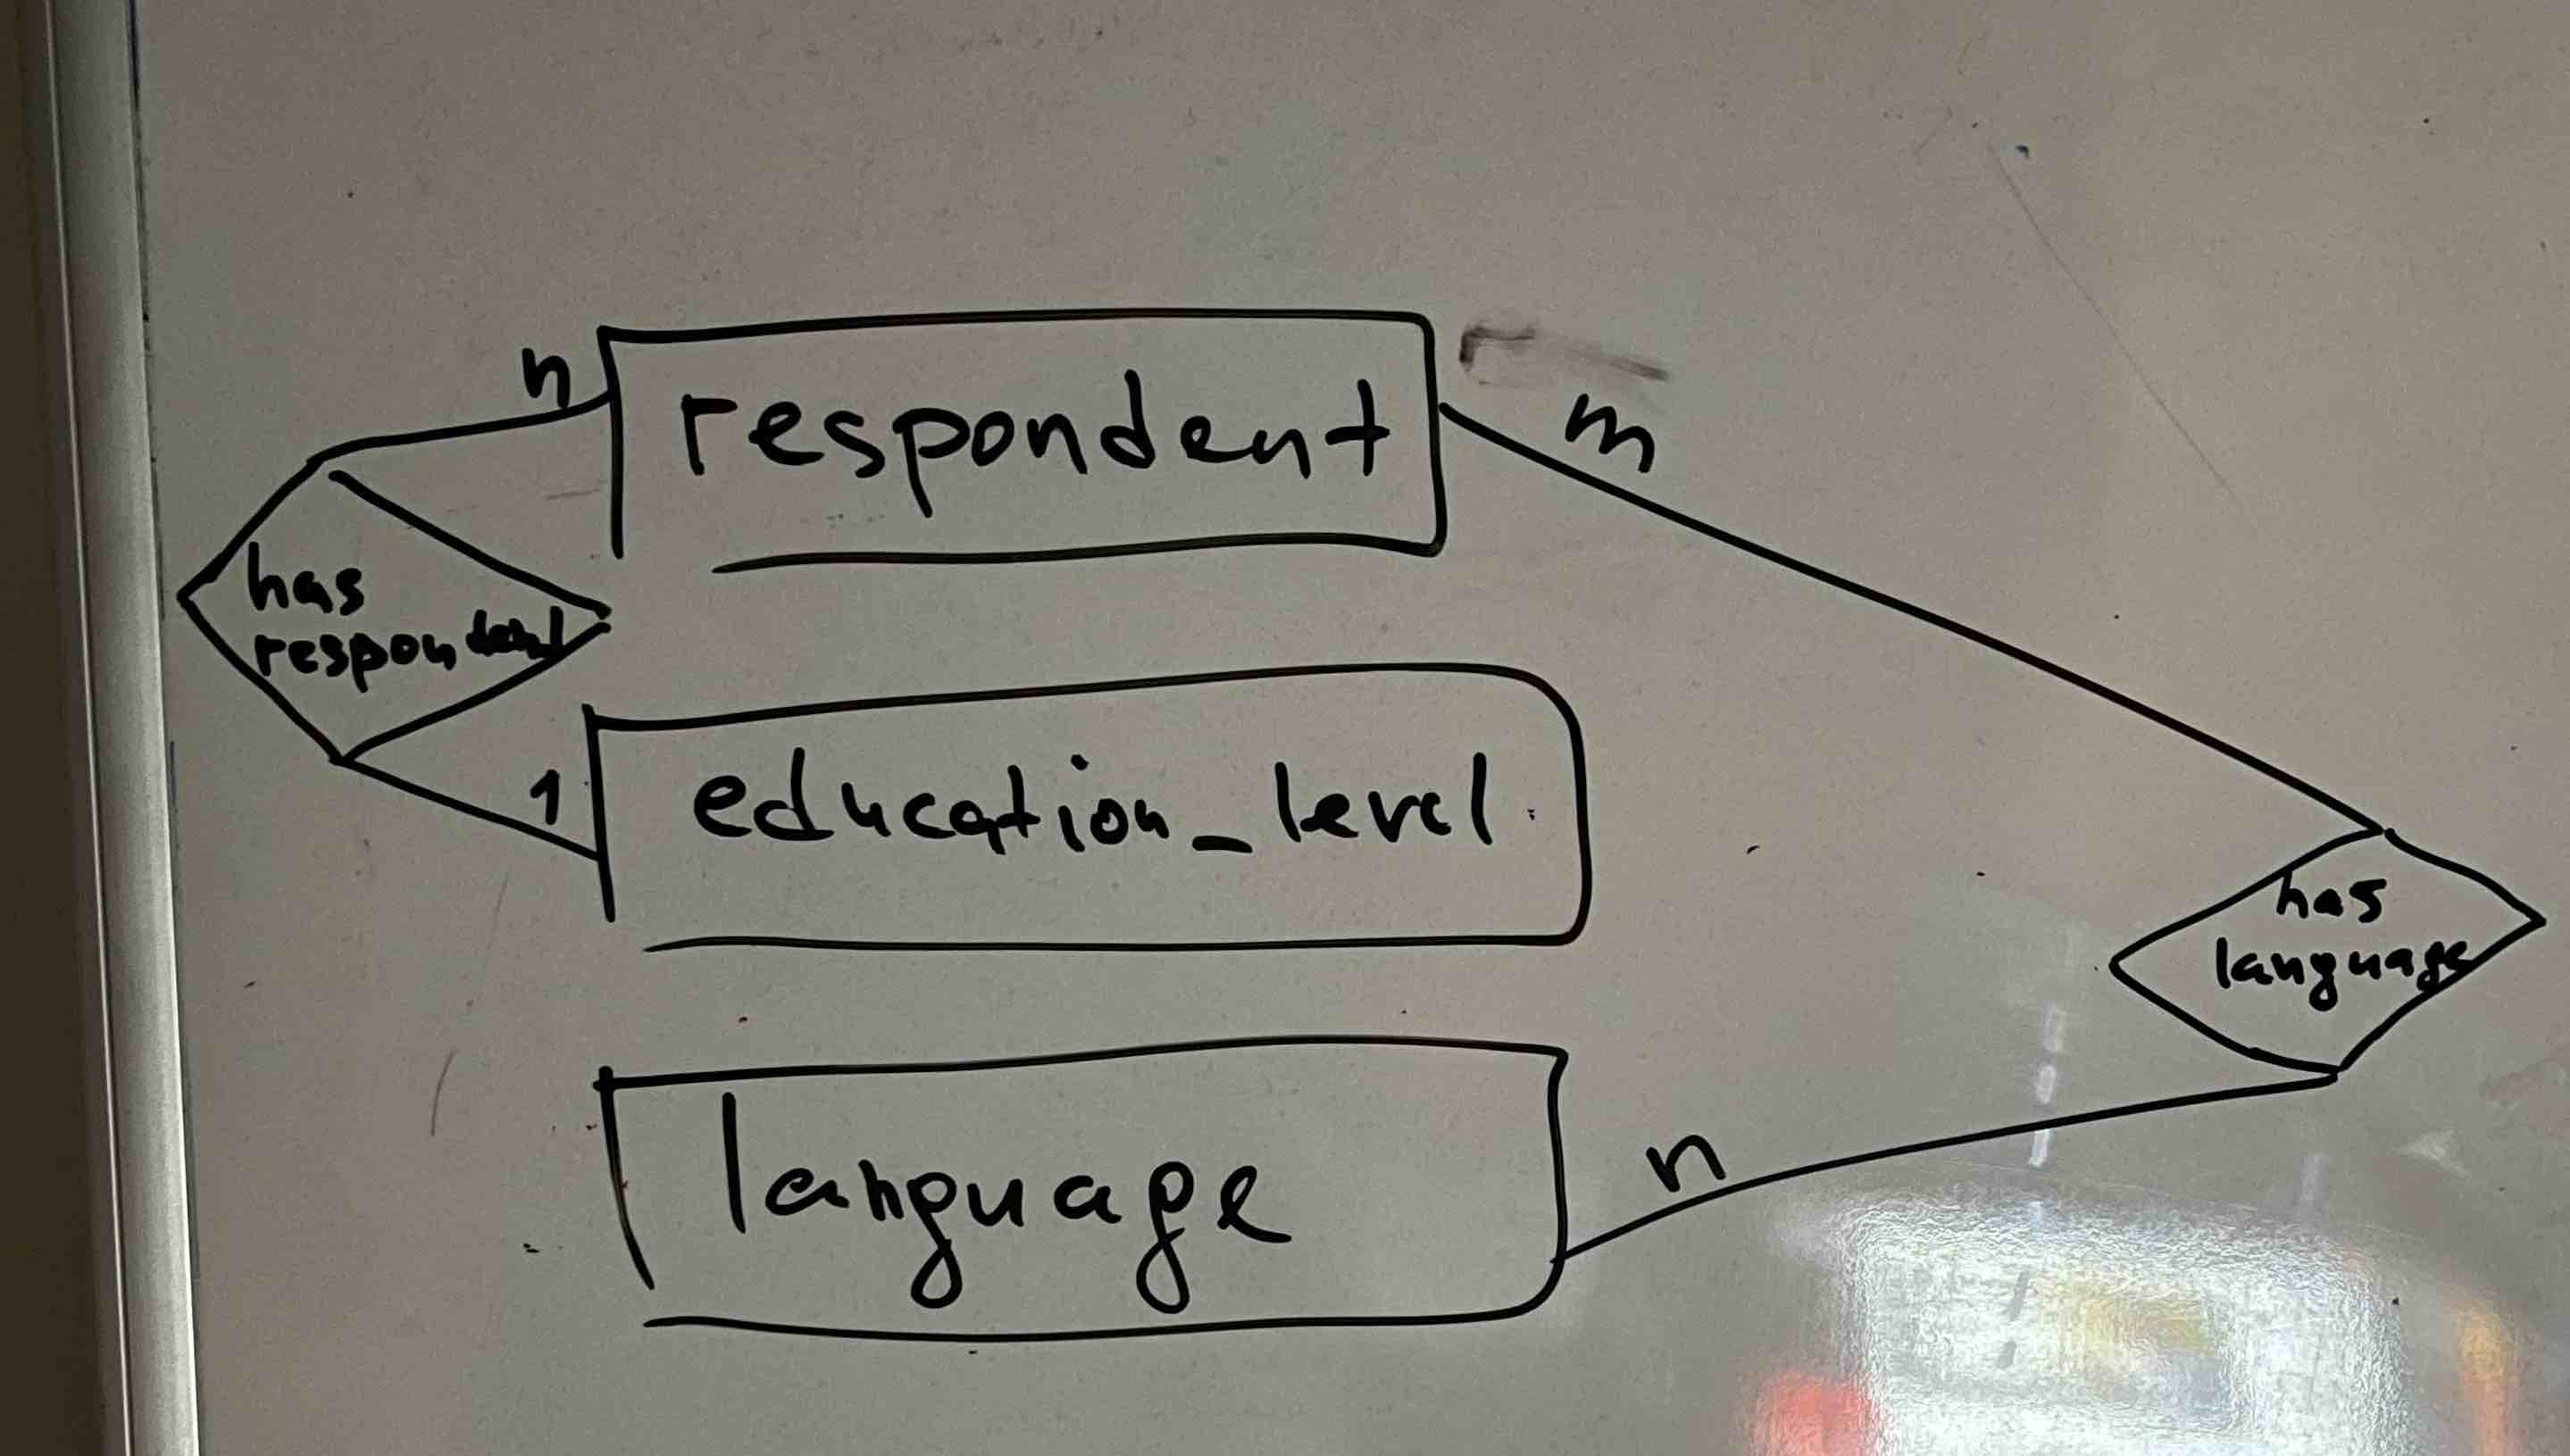 n
respondent
m
has
respondent
1
education_level
has
language
language
n